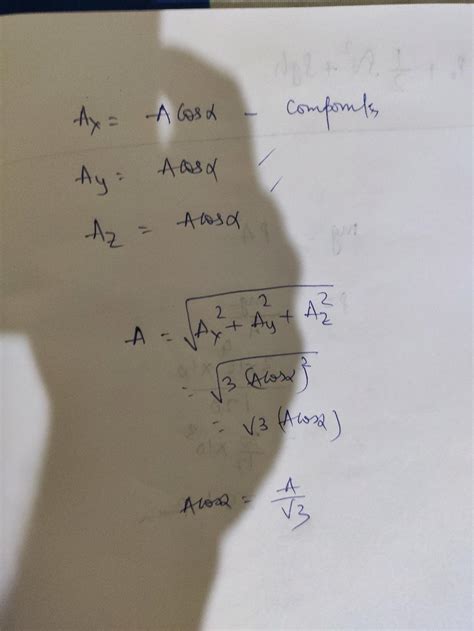 Ax = A cosα –
Ay = A cosα
Az = A cosα
A = √(Ax² + Ay² + Az²)
= √(3 (A cosα)²)
= √3 (A cosα)
A cosα = A/√3